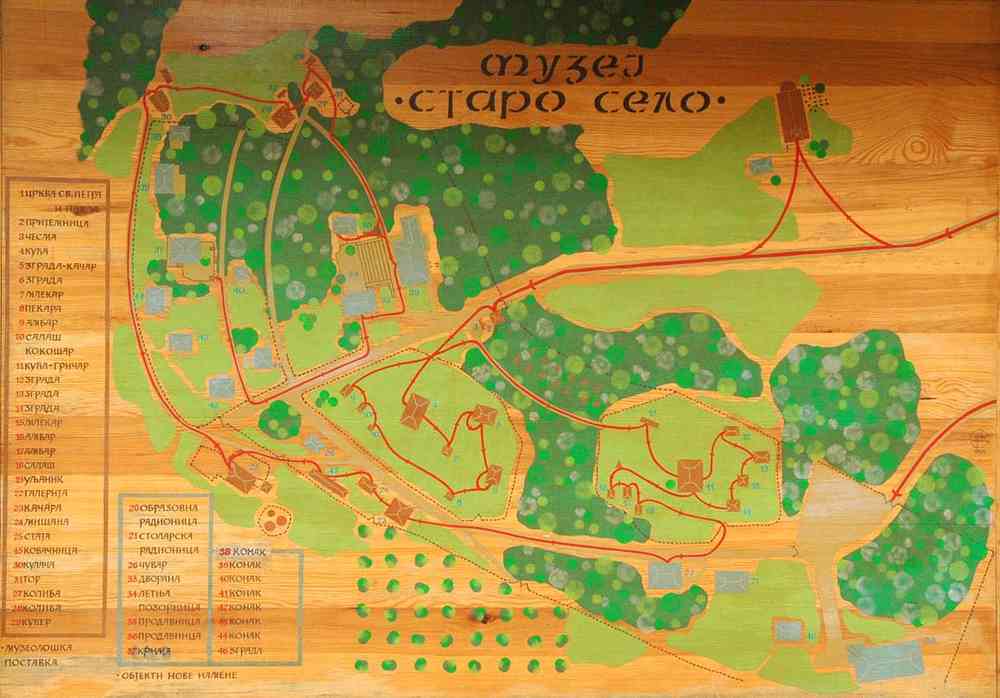 музеј
·старо село·
1 ЦРКВА СВ. ПЕТРА
И
2 ПРИТЕЖНИЦА
3 ЧЕСМА
4 КУЋА
5 ЗГРАДА-КАЧАР
6 ЗГРАДА
7 МЛЕКАР
8 ПЕКАРА
9 АМБАР
10 САЛАШ
КОКОШАР
11 КУЋА-ГРИЧАР
12 ЗГРАДА
13 ЗГРАДА
14 ЗГРАДА
15 МЛЕКАР
16 АМБАР
17 АМБАР
18 САЛАШ
21 УЉАНИК
22 ГАЛЕРИЈА
23 КАЧАРА
24 МИШАНА
25 СТАЈА
45 КОВАЧНИЦА
30 КУЛПА
31 ТОР
27 КОЛИБА
28 КОЛИБА
29 КУВЕР
·МУЗЕОЛОШКА
ПОСТАВКА
20 ОБРАЗОВНА
РАДИОНИЦА
21 СТОЛАРСКА
РАДИОНИЦА
26 ЧУВАР
33 ДВОРАНА
34 ЛЕТЊА
ПОЗОРНИЦА
35 ПРОДАВНИЦА
36 ПРОДАВНИЦА
37 КРЧМА
38 КОНАК
39 КОНАК
40 КОНАК
41 КОНАК
42 КОНАК
43 КОНАК
44 КОНАК
46 ЗГРАДА
·ОБЈЕКТИ НОВЕ НАМЕНЕ